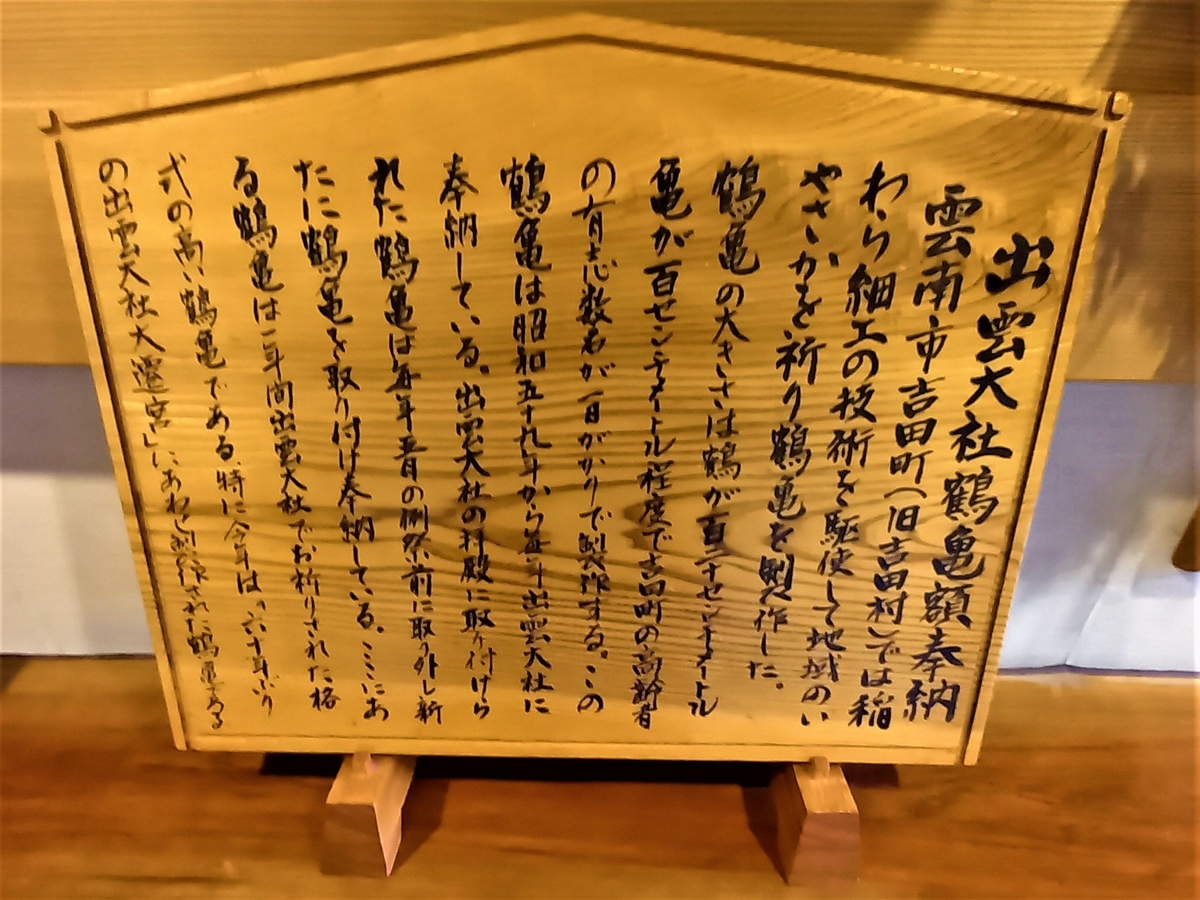 出雲大社鶴亀額奉納
雲南市吉田町(旧吉田村)では稲
わら細工の技術を駆使して地域のい
やさかを祈り鶴亀を製作した。
鶴亀の大きさは鶴が百二十センチメートル
亀が百センチメートル程度で吉田町の高齢者
の有志数名が一日がかりで製作する。この
鶴亀は昭和五十九年から毎年出雲大社に
奉納している。出雲大社の拝殿に取り付けら
れた鶴亀は毎年五月の例祭前に取り外し新
たに鶴亀を取り付け奉納している。ここにあ
る鶴亀は一年間出雲大社でお祈りされた格
式の高い鶴亀である。特に今年は。六十年ぶり
の出雲大社大遷宮しにあわせ製作された鶴亀である